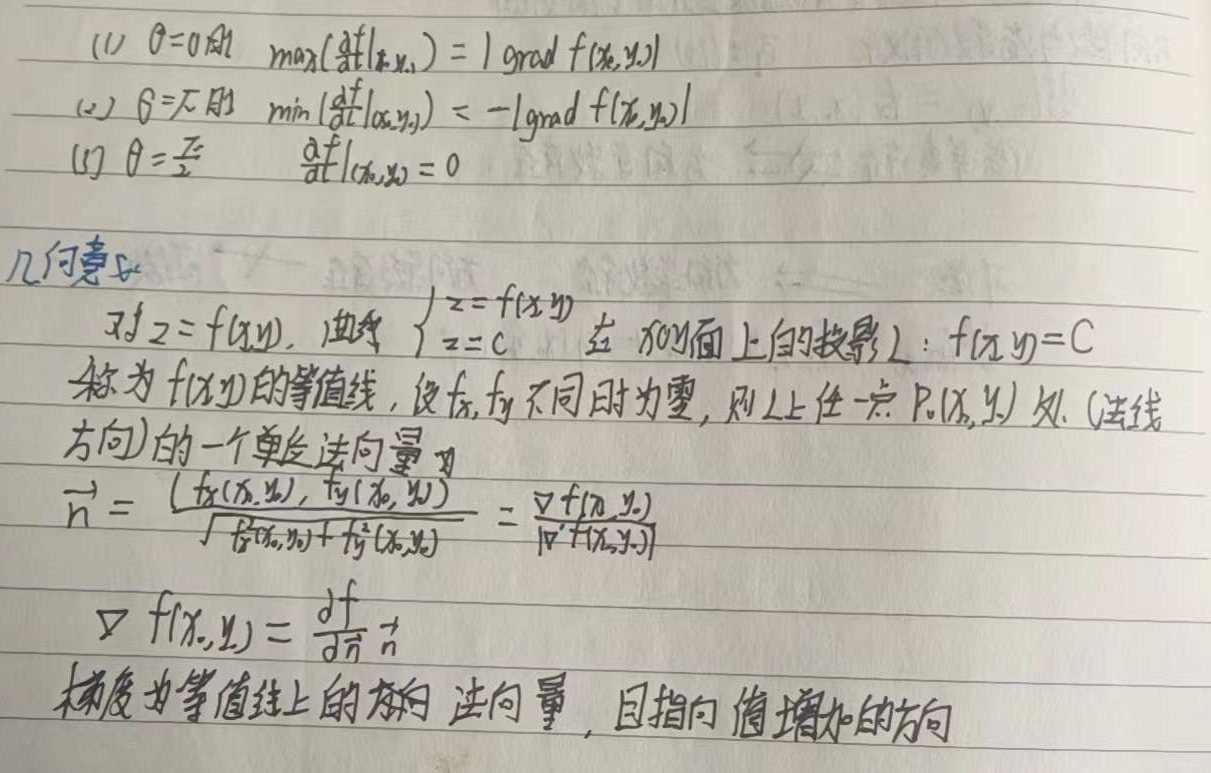 (1) θ=0时 max(∂f/∂l|(x₀,y₀)) = |grad f(x₀,y₀)|
(2) θ=π时 min(∂f/∂l|(x₀,y₀)) = -|grad f(x₀,y₀)|
(3) θ=π/2 ∂f/∂l|(x₀,y₀) = 0
几何意义
对 z=f(x,y), 曲线 { z=f(x,y) z=C 在 xoy面上的投影L: f(x,y)=C
称为 f(x,y)的等值线, 设fx, fy不同时为零, 则L上任一点 P₀(x₀,y₀) 处 (法线
方向)的一个单位法向量为
n⃗ = (fx(x₀,y₀), fy(x₀,y₀)) / √(fx²(x₀,y₀)+fy²(x₀,y₀)) = ∇f(x₀,y₀) / |∇f(x₀,y₀)|
∇f(x₀,y₀) = ∂f/∂n⃗ n⃗
梯度为等值线上的方向 法向量, 且指向值增加的方向